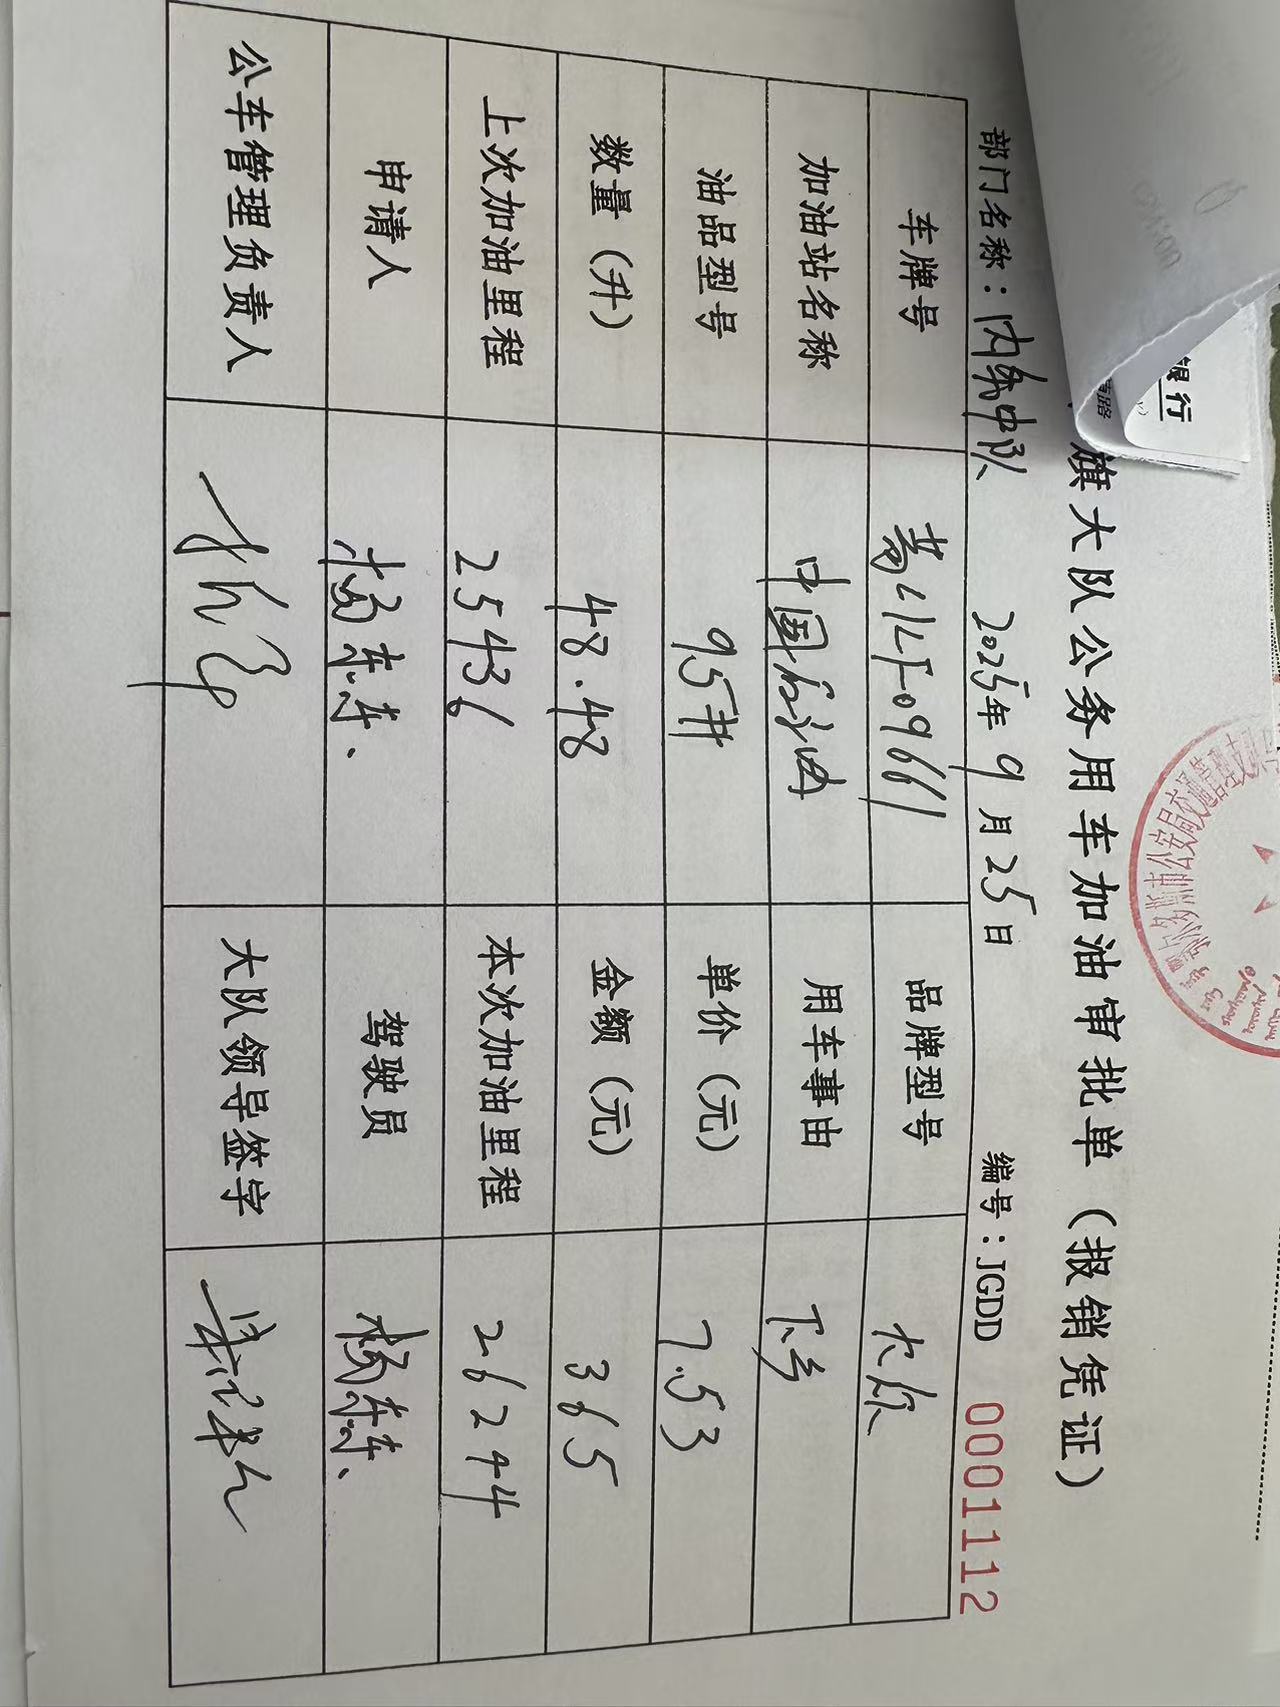 旗大队公务用车加油审批单（报销凭证）
部门名称：内东中队 2025年9月25日 编号：JGDD 0001112
车牌号 品牌型号
加油站名称 中国石油 用车事由 下乡
油品型号 95# 单价（元） 7.53
数量（升） 48.48 金额（元） 365
上次加油里程 25436 本次加油里程 26294
申请人 杨东东 驾驶员 杨东东
公车管理负责人 大队领导签字
银行